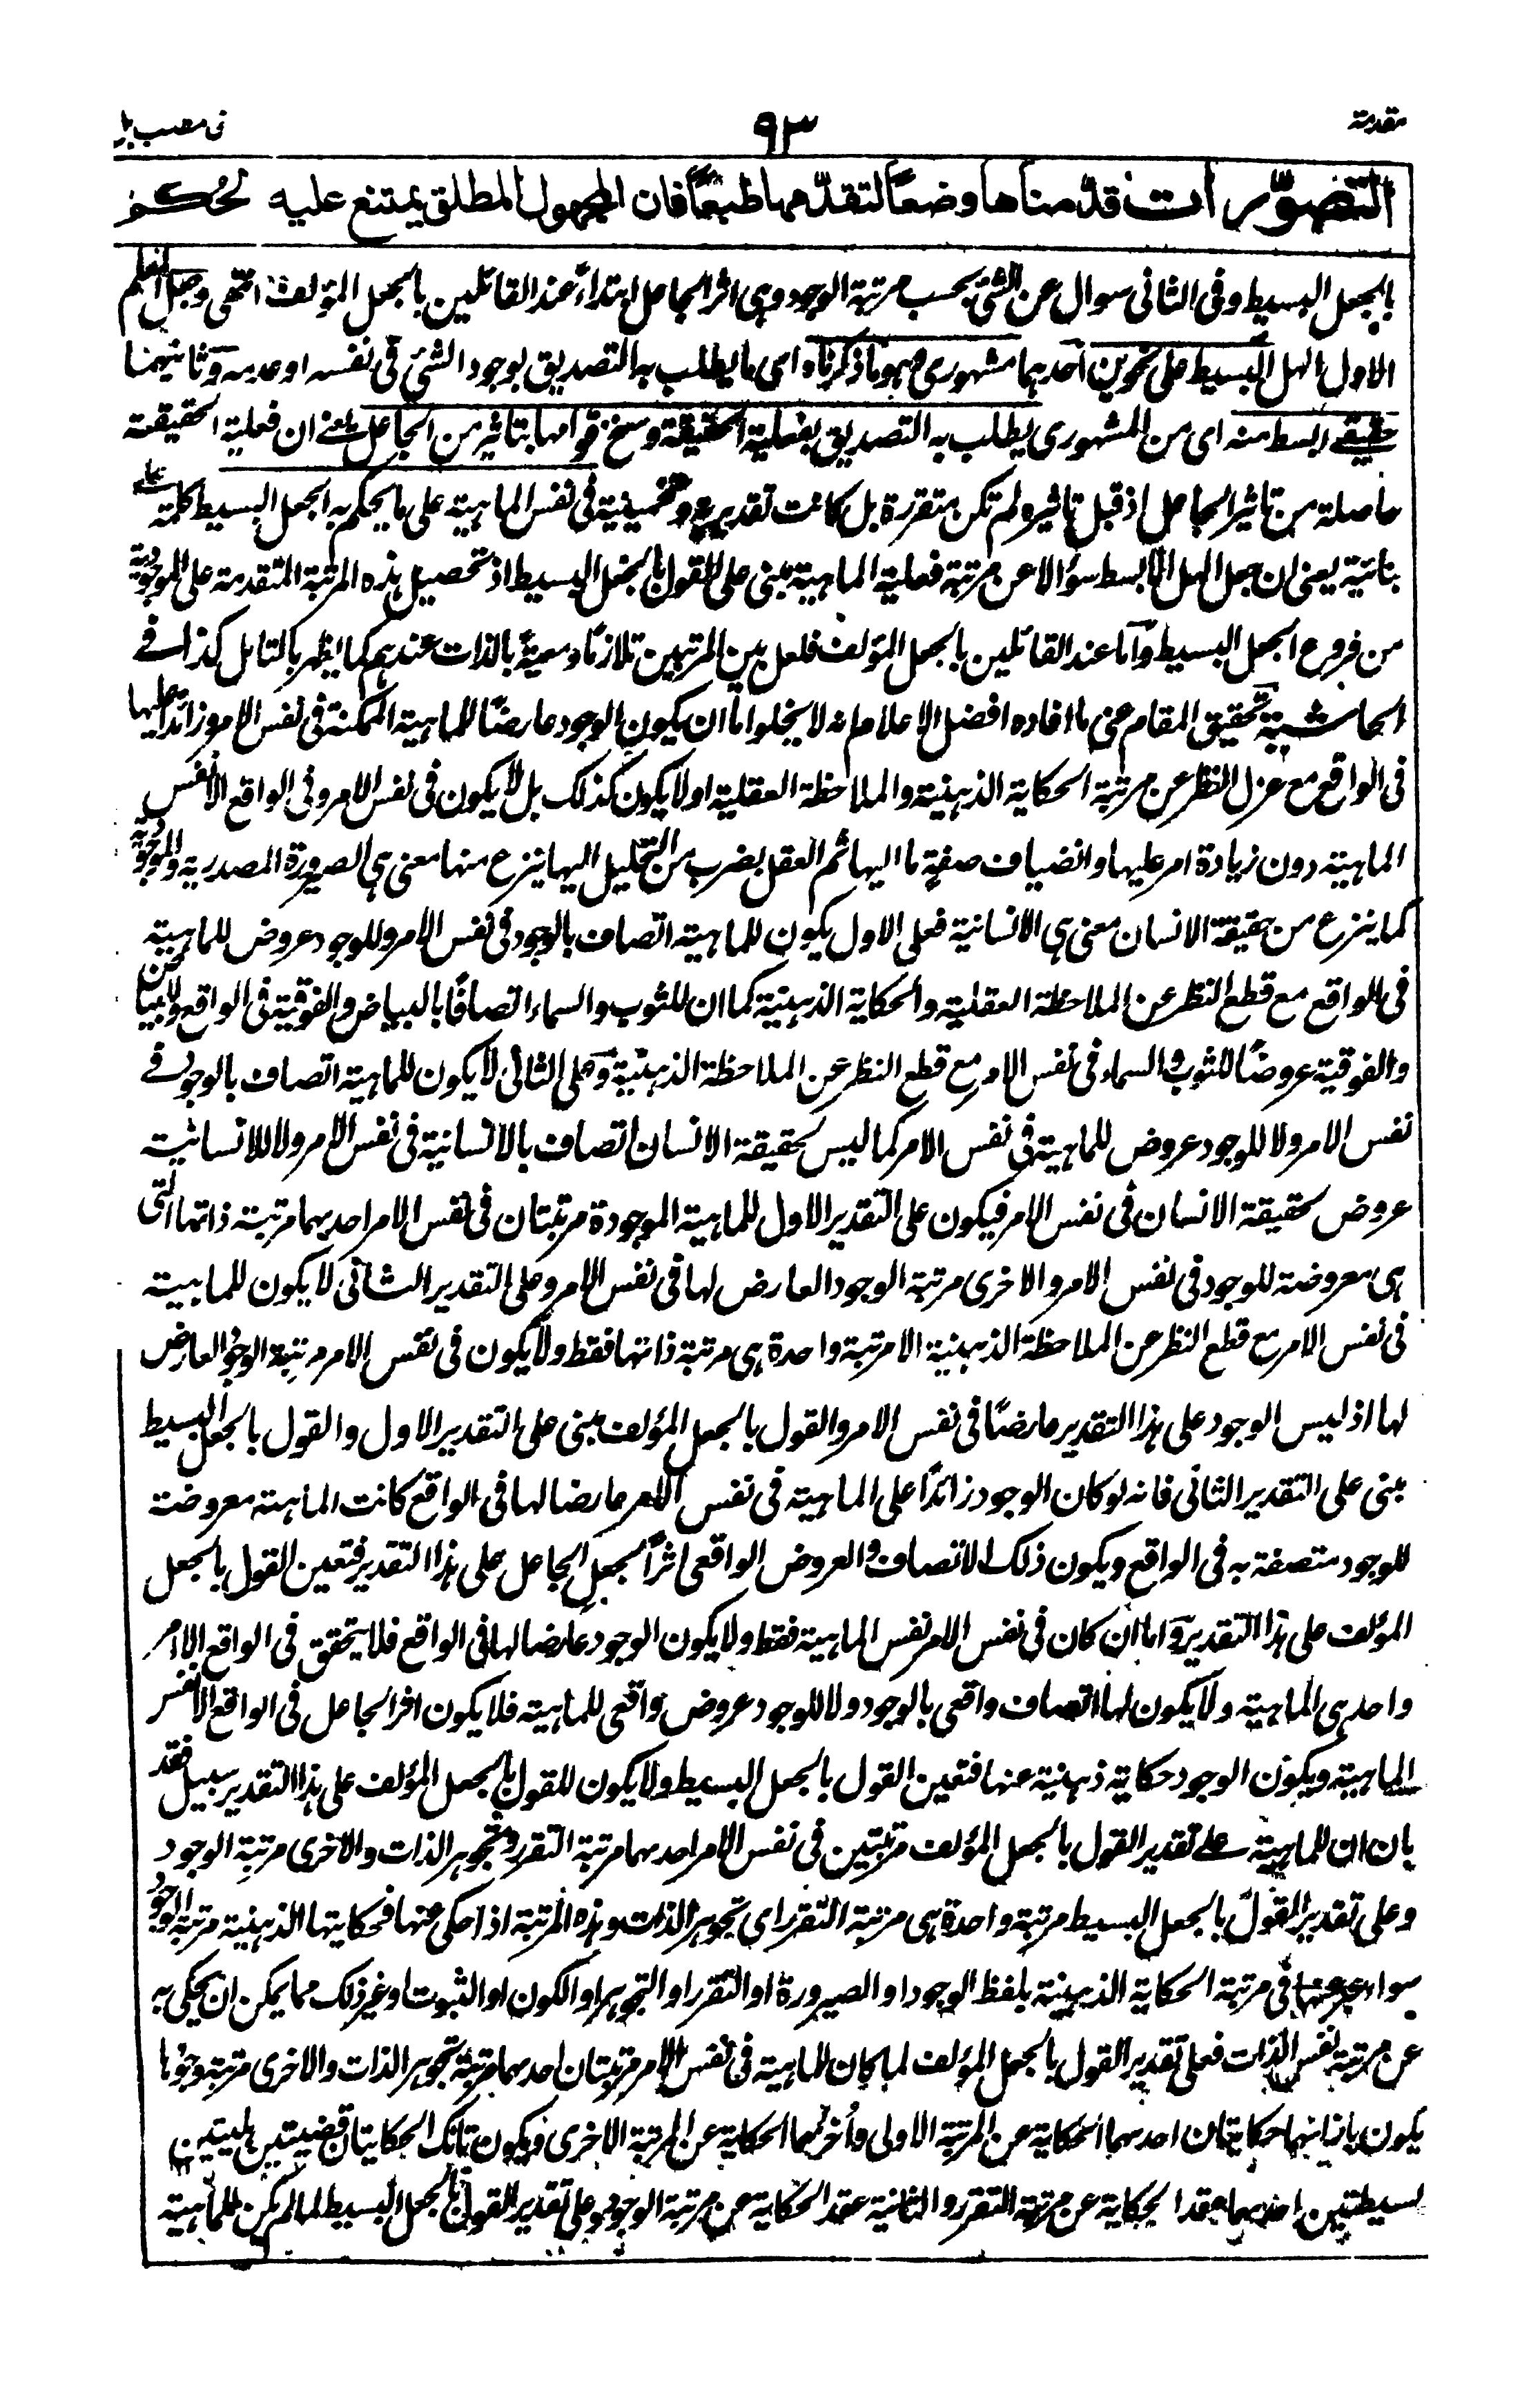 مقدمة
٩٣
فى مصب ہل
التصورات قدمناها وضعاً لتقدمها طبعاً فان المجهول المطلق يمتنع عليه الحكم
بالجعل البسيط وفى الثانى سوال عن الشئ بحسب مرتبة الوجود وہى اثر الجاعل ابتداءً عند القائلين بالجعل المؤلف انتهى وجعل المعلم
الاول الهل البسيط على نحوين احدہما مشہورى وہو ما ذكرناه اى ما يطلب به التصديق بوجود الشئ فى نفسه او عدمه وثانيهما
حقيقے ابسط منه اى من المشہورى يطلب به التصديق بفعلية الحقيقة وسنخ قوامها بتاثير من الجاعل بمعنے ان فعلية الحقيقة
حاصلة من تاثير الجاعل اذ قبل تاثيره لم تكن متقررة بل كانت تقديرية وتخمينية فى نفس الماہية على ما يحكم به الجعل البسيط كلمة على
بنائية يعنى ان جعل الهل الابسط سؤالا عن مرتبة فعلية الماہية مبنى على القول بالجعل البسيط اذ تحصيل ہذه المرتبة المتقدمة على الموجودية
من فروع الجعل البسيط واما عند القائلين بالجعل المؤلف فلعل بين المرتبتين تلازمًا ومعيةً بالذات عندہم كما يظهر بالتامل كذا فے
الحاشية تحقيق المقام على ما افاده افضل الاعلام انه لا يخلو اما ان يكون الوجود عارضًا للماہية الممكنة فى نفس الامر وزائدًا عليها
فى الواقع مع عزل النظر عن مرتبة الحكاية الذہنية والملاحظة العقلية او لا يكون كذلك بل لا يكون فى نفس الامر وفى الواقع الا نفس
الماہية دون زيادة امر عليها وانضياف صفةٍ ما اليها ثم العقل بضرب من التحليل اليها ينزع منها معنى ہى الصيرورة المصدرية والموجودية
كما ينزع من حقيقة الانسان معنى ہى الانسانية فعلى الاول يكون للماہية اتصاف بالوجود فى نفس الامر وللوجود عروض للماہية
فى الواقع مع قطع النظر عن الملاحظة العقلية والحكاية الذہنية كما ان للثوب والسماء اتصافًا بالبياض والفوقية فى الواقع وللبياض
والفوقية عروضًا للثوب والسماء فى نفس الامر مع قطع النظر عن الملاحظة الذہنية وعلى الثانى لا يكون للماہية اتصاف بالوجود فے
نفس الامر ولا للوجود عروض للماہية فى نفس الامر كما ليس لحقيقة الانسان اتصاف بالانسانية فى نفس الامر ولا للانسانية
عروض لحقيقة الانسان فى نفس الامر فيكون على التقدير الاول للماہية الموجودة مرتبتان فى نفس الامر احديہما مرتبة ذاتها التى
ہى معروضة للوجود فى نفس الامر والاخرى مرتبة الوجود العارض لها فى نفس الامر وعلى التقدير الثانى لا يكون للماہية
فى نفس الامر مع قطع النظر عن الملاحظة الذہنية الا مرتبة واحدة ہى مرتبة ذاتها فقط ولا يكون فى نفس الامر مرتبة الوجود العارض
لها اذ ليس الوجود على ہذا التقدير عارضًا فى نفس الامر والقول بالجعل المؤلف مبنى على التقدير الاول والقول بالجعل البسيط
مبنى على التقدير الثانى فانه لو كان الوجود زائدًا على الماہية فى نفس الامر عارضا لها فى الواقع كانت الماہية معروضة
للوجود متصفة به فى الواقع ويكون ذلك الاتصاف والعروض الواقعى اثرًا لجعل الجاعل على ہذا التقدير فتعين القول بالجعل
المؤلف على ہذا التقدير واما ان كان فى نفس الامر نفس الماہية فقط ولا يكون الوجود عارضا لها فى الواقع فلا يتحقق فى الواقع الا امر
واحد ہى الماہية ولا يكون لها اتصاف واقعى بالوجود ولا للوجود عروض واقعى للماہية فلا يكون اثر الجاعل فى الواقع الا نفس
الماہية ويكون الوجود حكاية ذہنية عنها فتعين القول بالجعل البسيط ولا يكون للقول بالجعل المؤلف على ہذا التقدير سبيل فقد
بان ان للماہية علے تقدير القول بالجعل المؤلف مرتبتين فى نفس الامر احديہما مرتبة التقرر وتجوہر الذات والاخرى مرتبة الوجود
وعلى تقدير القول بالجعل البسيط مرتبة واحدة ہى مرتبة التقرر اى تجوہر الذات وہذه المرتبة اذا حكى عنها فحكايتها الذہنية مرتبة الوجود
سواء عبر عنها فى مرتبة الحكاية الذہنية بلفظ الوجود او الصيرورة او التقرر او التجوہر او الكون او الثبوت او غير ذلك مما يمكن ان يحكى به
عن مرتبة نفس الذات فعلى تقدير القول بالجعل المؤلف لما كان للماہية فى نفس الامر مرتبتان احديہما مرتبة تجوہر الذات والاخرى مرتبة وجودہا
يكون بازائها حكايتان احديہما الحكاية عن المرتبة الاولى واخراہما الحكاية عن المرتبة الاخرى ويكون تانك الحكايتان قضيتين ہليتين
بسيطتين احديہما عقد الحكاية عن مرتبة التقرر والثانية عقد الحكاية عن مرتبة الوجود وعلى تقدير القول بالجعل البسيط لما لم يكن للماہية